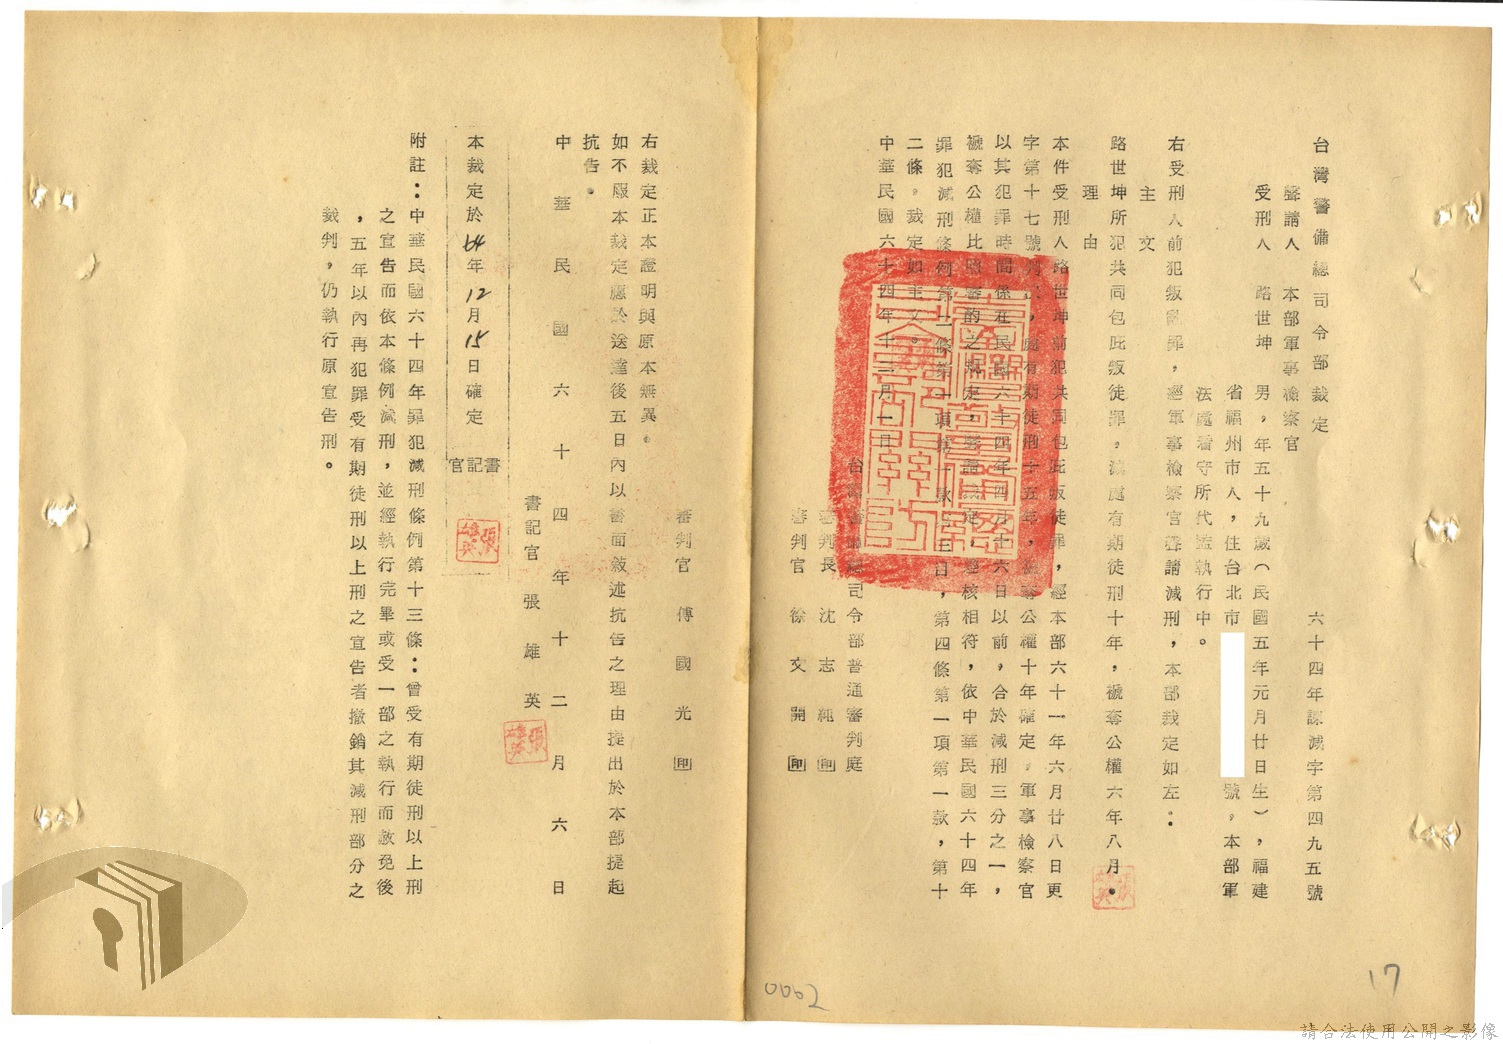 台灣警備總司令部裁定　六十四年諫減字第四九五號
聲請人　本部軍事檢察官
受刑人　路世坤　男，年五十九歲（民國五年元月廿日生），福建
省福州市人，住台北市　號。本部軍
法處看守所代監執行中。
右受刑人前犯叛亂罪，經軍事檢察官聲請減刑，本部裁定如左：
主文
路世坤所犯共同包庇叛徒罪，減處有期徒刑十年，褫奪公權六年八月。
理由
本件受刑人路世坤前犯共同包庇叛徒罪，經本部六十一年六月廿八日更
字第十七號，處有期徒刑十五年，褫奪公權十年確定。軍事檢察官
以其犯罪時間係在民國六十四年四月十六日以前，合於減刑三分之一，
褫奪公權比照審酌之規定，聲請裁定，經核相符，依中華民國六十四年
罪犯減刑條例第二條第一項第十款，第四條第一項第一款，第十
二條。裁定如主文。
中華民國六十四年十二月一日
台灣警備總司令部普通審判庭
審判長　沈志純　印
審判官　徐文開　印
審判官　傅國光　印
右裁定正本證明與原本無異。
如不服本裁定應於送達後五日內以書面敘述抗告之理由提出於本部提起
抗告。
中華民國六十四年十二月六日
書記官　張雄英
張雄英
本裁定於64年12月15日確定
書記官
張雄英
附註：中華民國六十四年罪犯減刑條例第十三條：曾受有期徒刑以上刑
之宣告而依本條例減刑，並經執行完畢或受一部之執行而赦免後
，五年以內再犯罪受有期徒刑以上刑之宣告者撤銷其減刑部分之
裁判，仍執行原宣告刑。
0062
17
請合法使用公開之影像